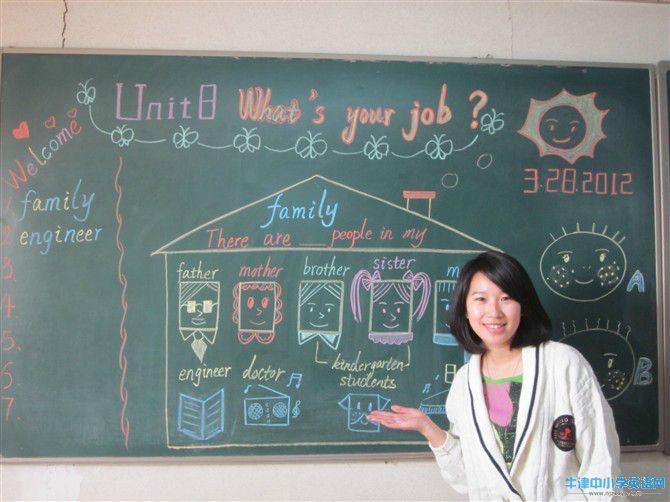 Unit8 What's your job?
Welcome
3.28.2012
1. family
2. engineer
3.
4.
5.
6.
7.
family
There are people in my
father mother brother sister m
engineer doctor kindergarten
students
A
B
牛津中小学英语网